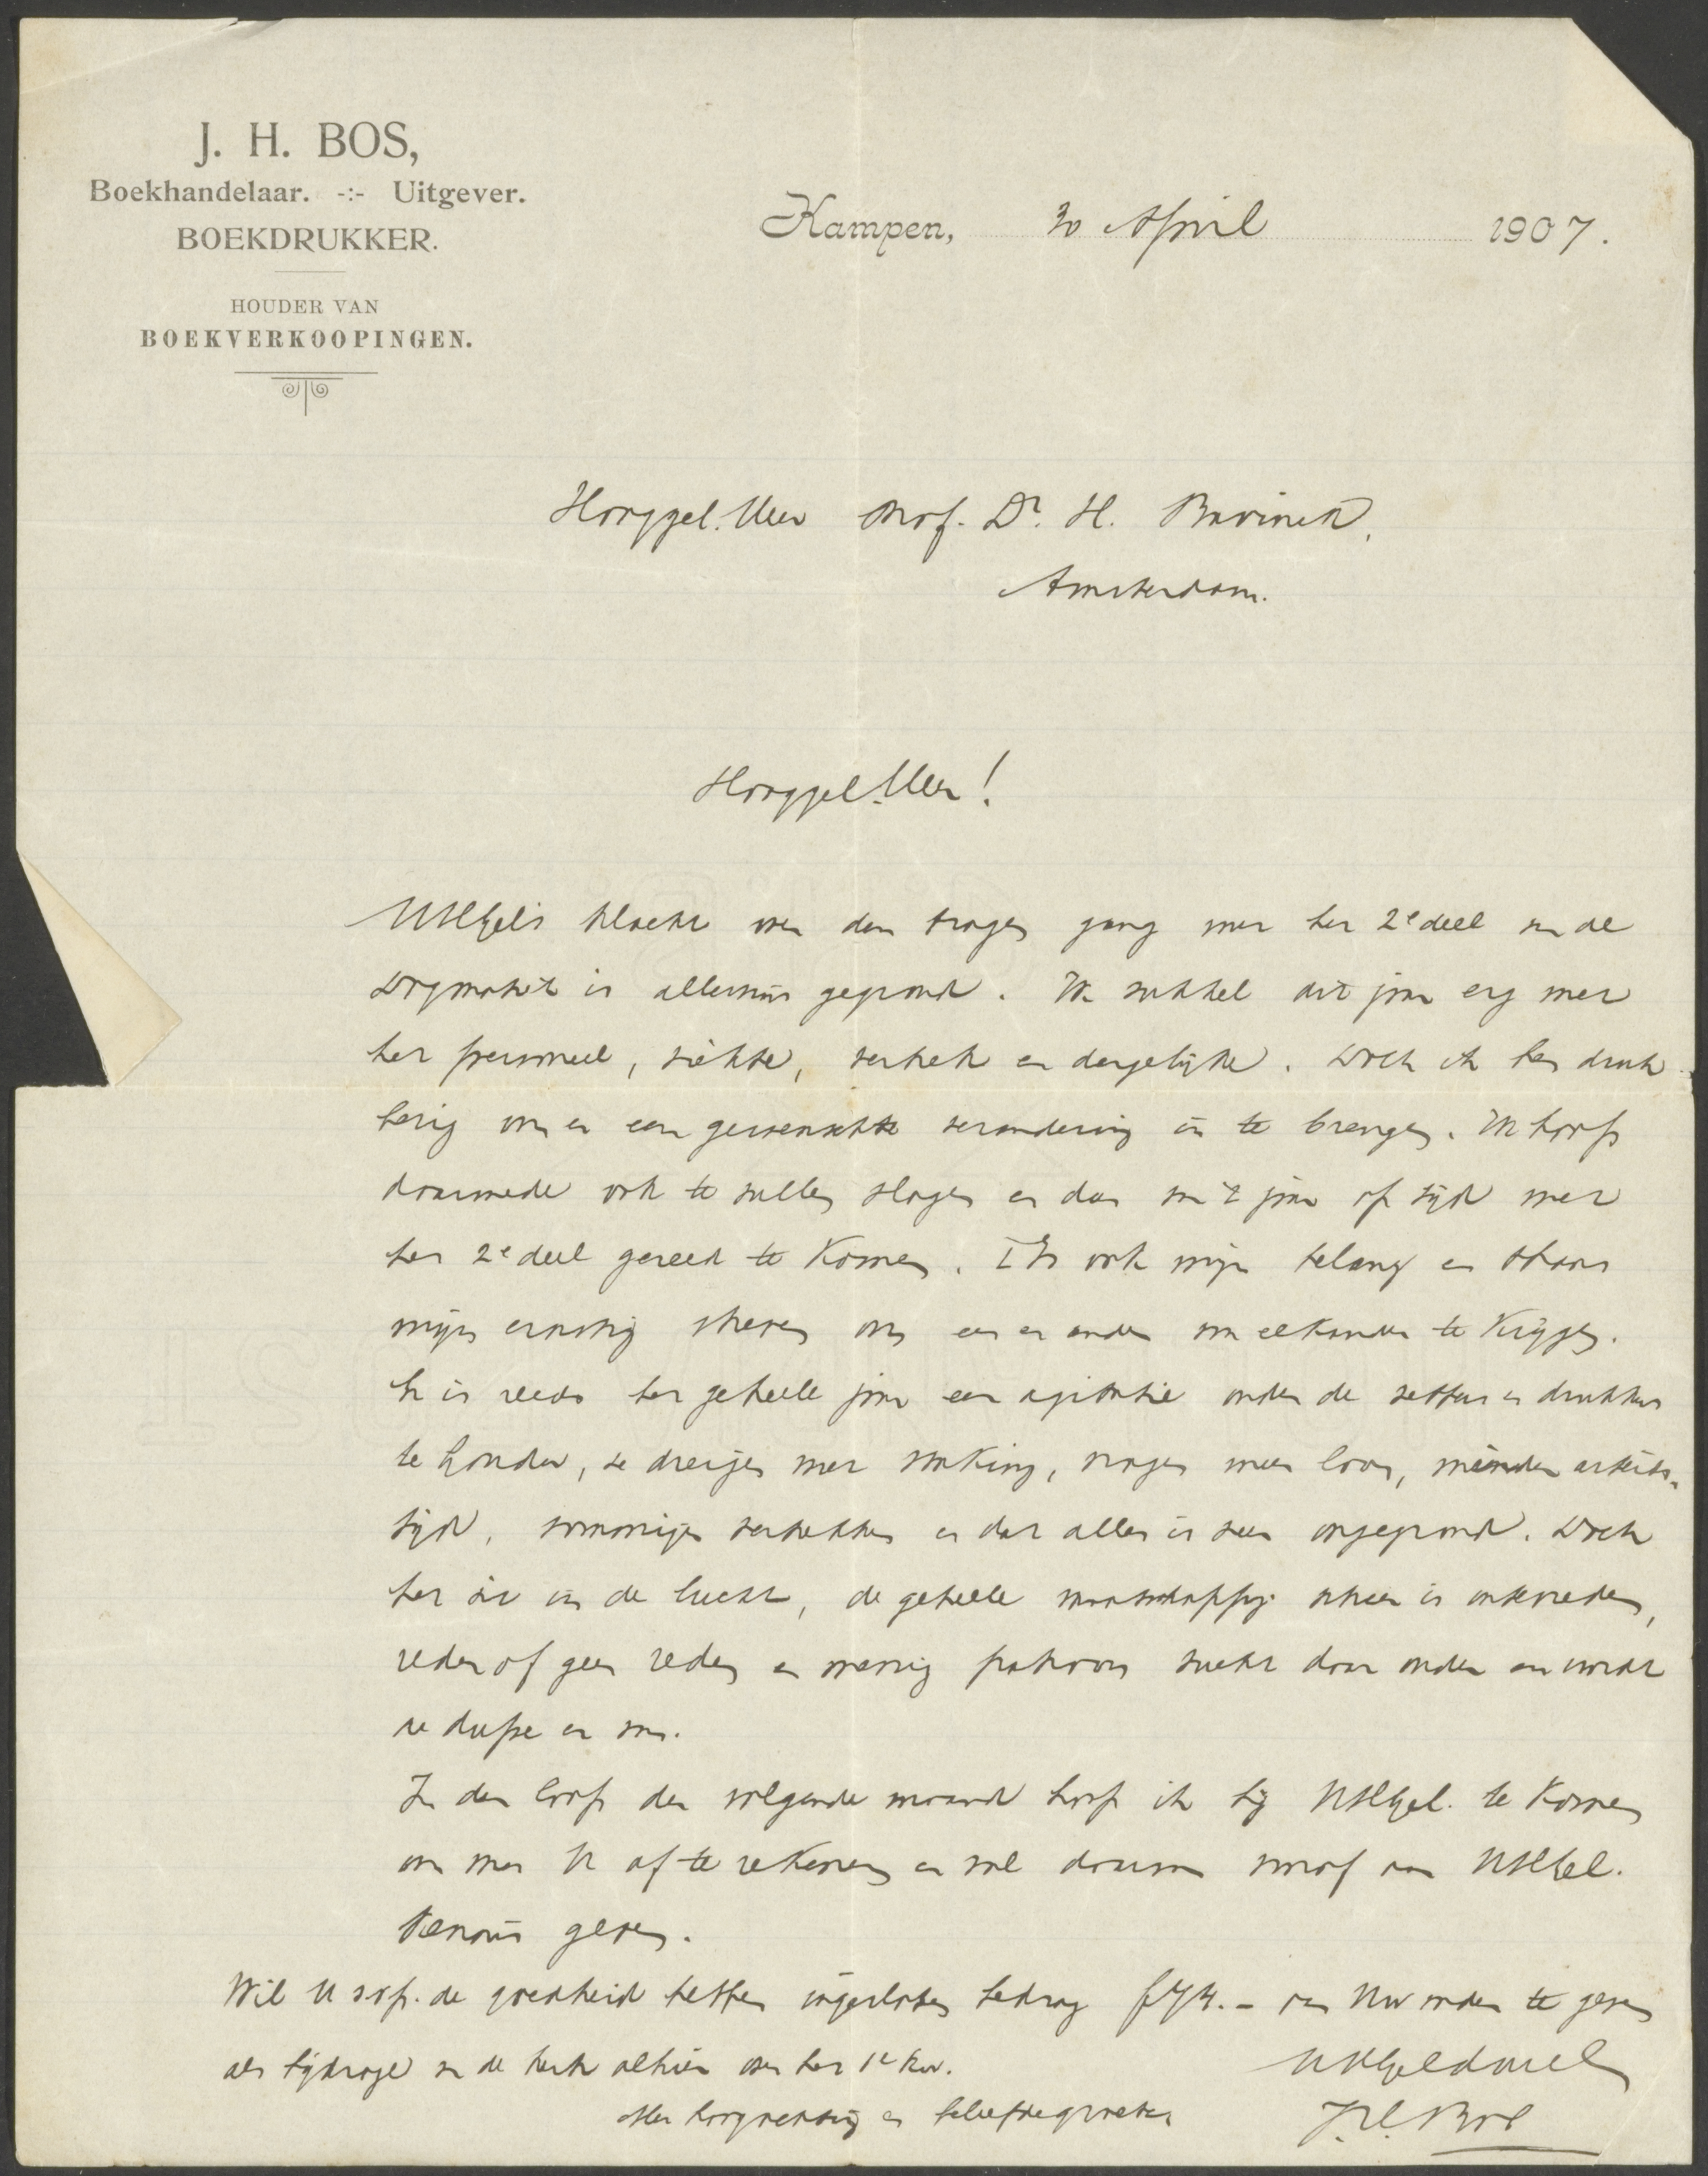 J. H. BOS,
Boekhandelaar. -:- Uitgever.
BOEKDRUKKER.
HOUDER VAN
BOEKVERKOOPINGEN.
Kampen, 30 April 1907.
Hooggel. Heer Prof. Dr. H. Bavinck,
Amsterdam.
Hooggel. Heer!
UHGel's klacht over den tragen gang met het 2e deel van de
Dogmatiek is alleszins gegrond. Ik sukkel dit jaar erg met
het personeel, ziekte, vertrek en dergelijke. Doch ik ben druk
bezig om er een gewenschte verandering in te brengen. Ik hoop
daarmede ook te zullen slagen en dan van 't jaar op tijd met
het 2e deel gereed te komen. 't Is ook mijn belang en thans
mijn ernstig streven om een en ander voor elkander te krijgen.
Er is reeds het geheele jaar een agitatie onder de zetters en drukkers
te houden, ze dreigen met staking, vragen meer loon, minder arbeids-
tijd, sommigen vertrekken en dat alles is zeer ongegrond. Doch
het zit in de lucht, de geheele maatschappij schier is ontevreden,
reden of geen reden en menig patroon zucht daar onder en wordt
de dupe er van.
In den loop der volgende maand hoop ik bij UHGel. te komen
om met U af te rekenen en zal daarvan vooraf aan UHGel.
kennis geven.
Wil U s.v.p. de goedheid hebben ingesloten bedrag aan Uw orden te geven
als bijdrage van de kerk alhier over het 1e kw.
Met hoogachting en beleefde groeten
UHGel dw
J.H. Bos